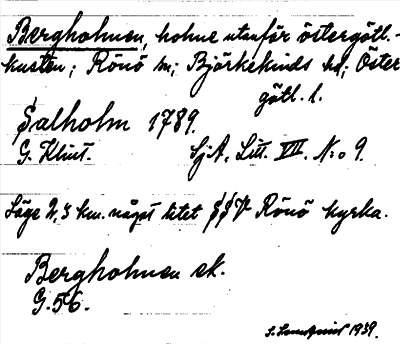 Bergholmen, holme utanför östergötl.-
kusten; Rönö sn; Björkekinds hd; Öster
götl. l.
Salholm 1789.
G. Klint. SjA, Litt. VII. No 9.
Läge 2,3 km. något litet SSV Rönö kyrka.
Bergholmen ek.
G.56.
1939.